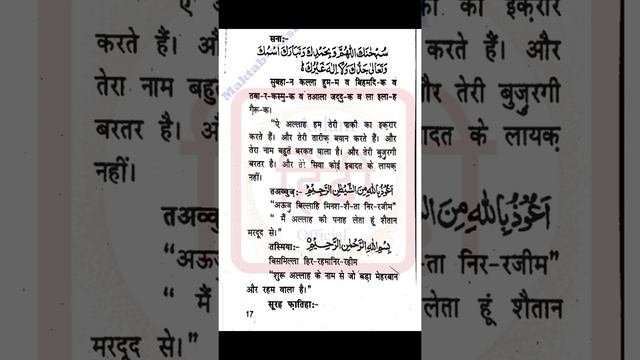 सना:-
سُبْحٰنَكَ اللّٰهُمَّ وَبِحَمْدِكَ وَتَبَارَكَ اسْمُكَ
وَتَعَالٰى جَدُّكَ وَلَآ اِلٰهَ غَيْرُكَ
सुबहा-न कल्ला हुम-म व बिहमदि-क व
तबा-र-कस्मु-क व तआला जददु-क व ला इला-ह
गै़रू-क।
"ऐ अल्लाह हम तेरी पाकी का इक़रार
करते हैं। और तेरी तारीफ़ बयान करते हैं। और
तेरा नाम बहुत बरकत वाला है। और तेरी बुजुरगी
बरतर है। और तेरे सिवा कोई इबादत के लायक़
नहीं।
तअव्वुज़:- اَعُوْذُ بِاللّٰهِ مِنَ الشَّيْطٰنِ الرَّجِيْمِ
"अऊजु बिल्लाहि मिनश-शै-ता निर-रजीम"
" मैं अल्लाह की पनाह लेता हूं शैतान
मरदूद से।"
तस्मिया:- بِسْمِ اللّٰهِ الرَّحْمٰنِ الرَّحِيْمِ
बिसमिल्ला हिर-रहमानिर-रहीम
"शुरू अल्लाह के नाम से जो बड़ा मेहरबान
और रहम वाला है।"
सूरह फ़ातिहा:-
17